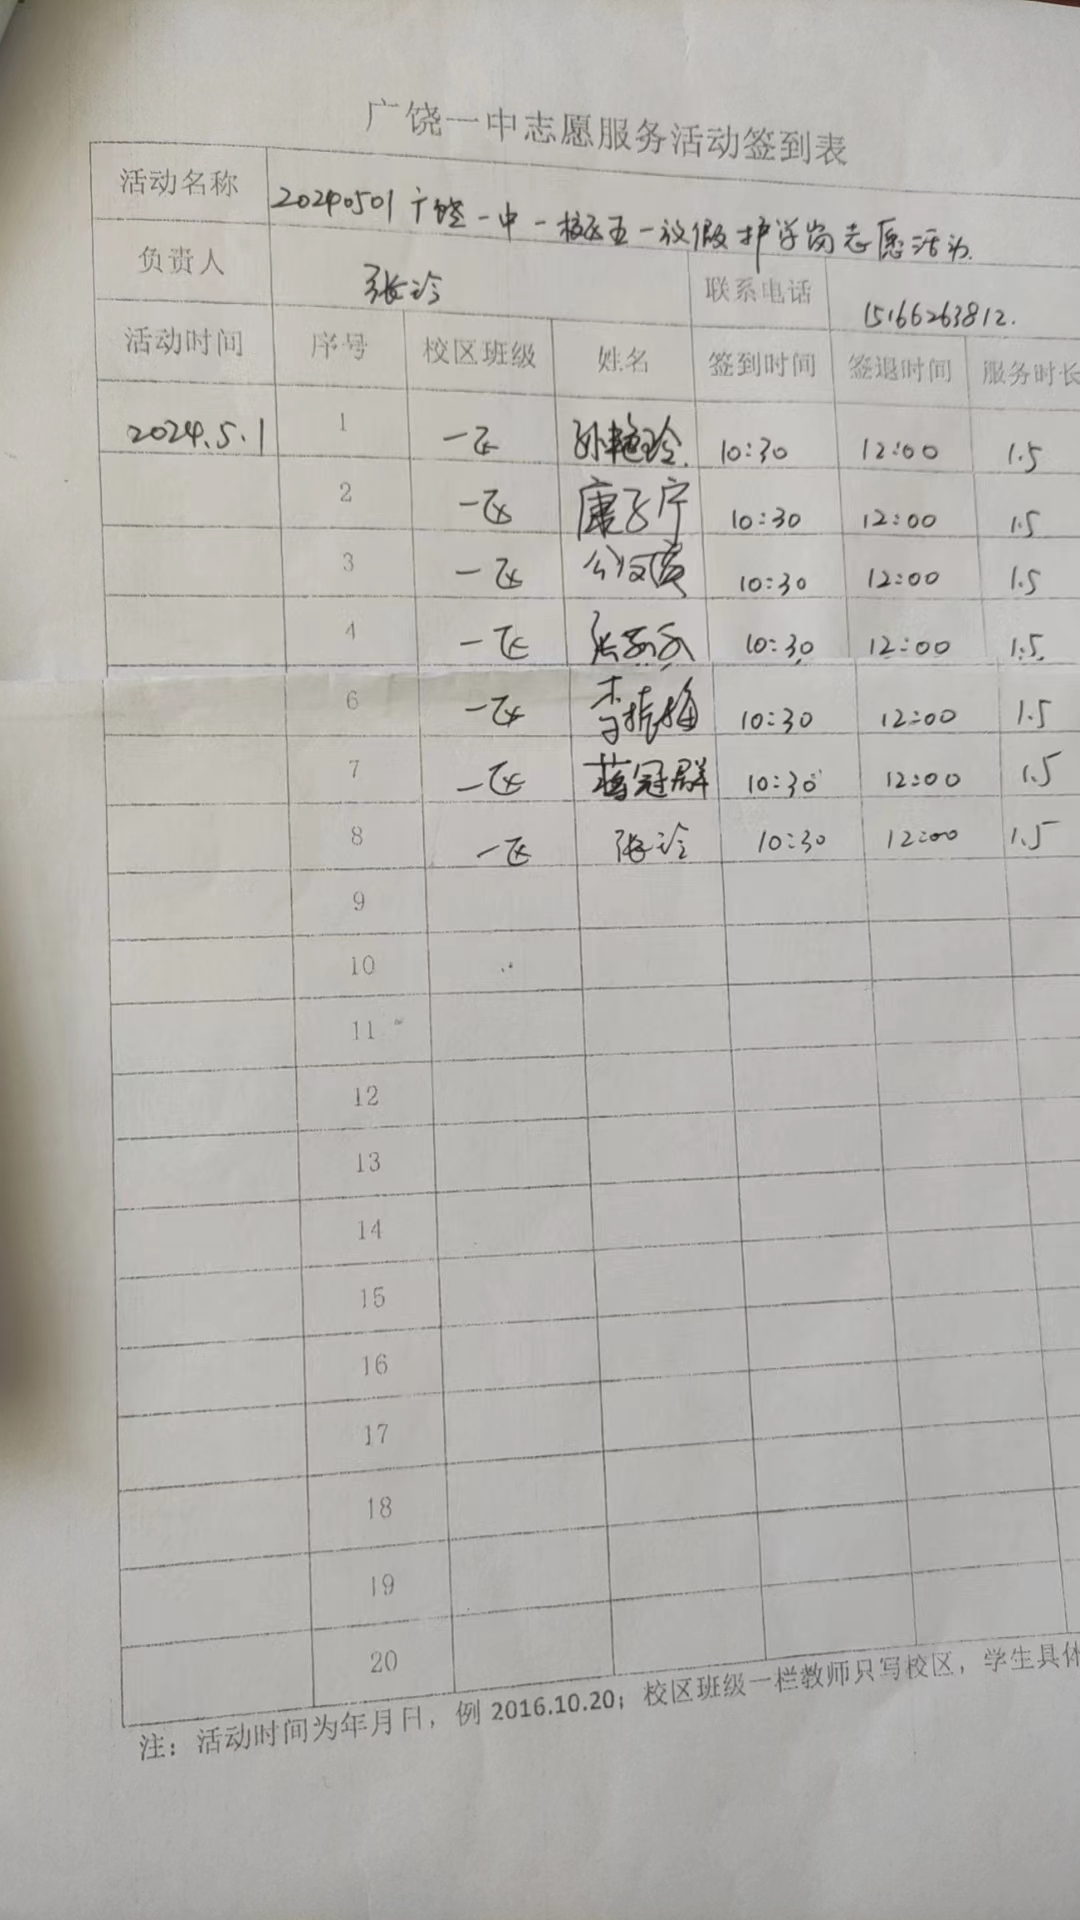 广饶一中志愿服务活动签到表
活动名称 20240501广饶一中一校区五一放假护学岗志愿活动
负责人 张玲 联系电话 15166263812.
活动时间 序号 校区班级 姓名 签到时间 签退时间 服务时长
2024.5.1 1 一区 孙艳玲 10:30 12:00 1.5
2 一区 唐子宁 10:30 12:00 1.5
3 一区 10:30 12:00 1.5
4 一区 10:30 12:00 1.5
6 一区 李振梅 10:30 12:00 1.5
7 一区 蒋冠群 10:30 12:00 1.5
8 一区 张玲 10:30 12:00 1.5
9
10
11
12
13
14
15
16
17
18
19
20
注：活动时间为年月日，例 2016.10.20；校区班级一栏教师只写校区，学生具体